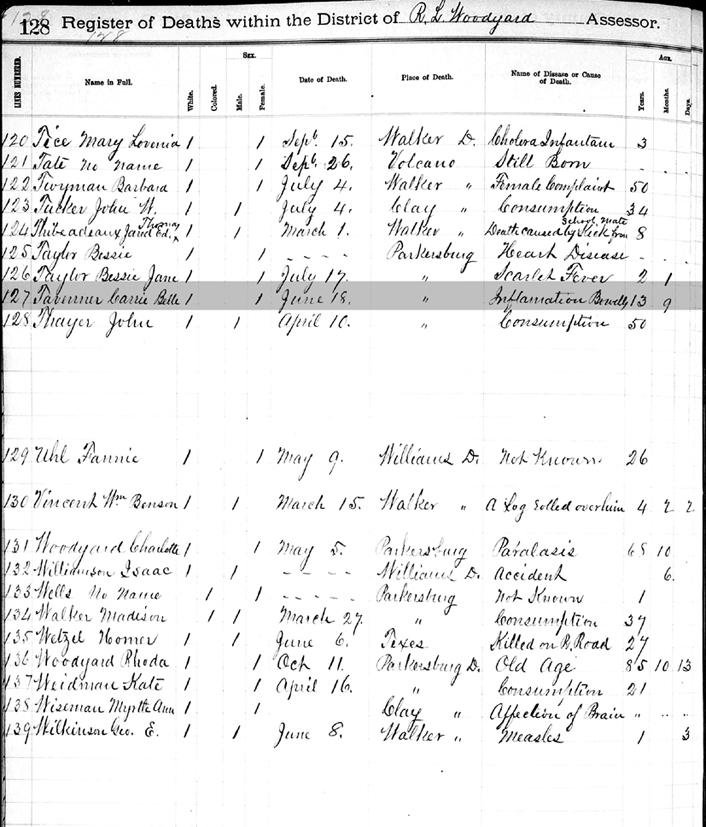 128 Register of Deaths within the District of R. L. Woodyard Assessor.
128
LINES NUMBERED. Name in Full. White. Colored. Sex. Male. Female. Date of Death. Place of Death. Name of Disease or Cause of Death. Age. Years. Months. Days.
120 Tice Mary Lovenia 1 1 Sept. 15. Walker D. Cholera Infantum 3
121 Tate No Name 1 1 Sept. 26. Volcano Still Born - . .
122 Twyman Barbara 1 1 July 4. Walker " Female Complaint 50
123 Tucker John W. 1 1 July 4. Clay " Consumption 34
124 Thibeadeaux Thomas 1 1 March 1. Walker " Death caused by Kick from School mate 8
125 Taylor Bessie 1 1 - - - - Parkersburg Heart Disease - . .
126 Taylor Bessie Jane 1 1 July 17. " Scarlet Fever 2 1
127 Tavenner Carrie Belle 1 1 June 18. " Inflamation Bowells 13 9
128 Thayer John 1 1 April 10. " Consumption 50
129 Uhl Fannie 1 1 May 9. Williams D. Not Known 26
130 Vincent Wm Benson 1 1 March 15. Walker " A Log rolled over him 4 2 2
131 Woodyard Charlotte 1 1 May 5. Parkersburg Paralasis 10
132 Williamson Isaac 1 1 - - - - Williams D. Accident 6.
133 Wells No Name 1 1 - - - - - Parkersburg Not Known 1
134 Walker Madison 1 1 March 27. " Consumption 37
135 Wetzel Homer 1 1 June 6. Texes Killed on R. Road 27
136 Woodyard Rhoda 1 1 Oct 11. Parkersburg D. Old Age 85 10 13
137 Weidman Kate 1 1 April 16. " Consumption 21
138 Wiseman Myrtle Ann 1 1 Clay " Affection of Brain " " "
139 Wilkinson Geo. E. 1 1 June 8. Walker " Measles 1 3